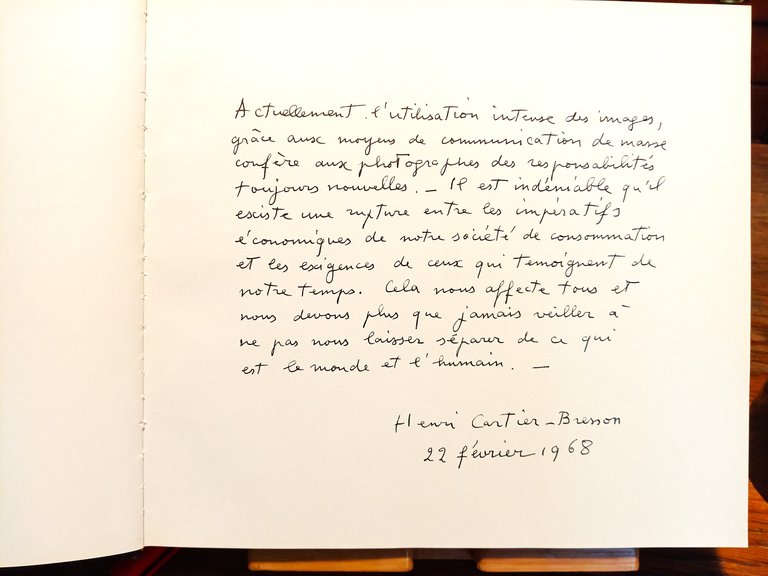 Actuellement l'utilisation intense des images,
grâce aux moyens de communication de masse
confère aux photographes des responsabilités
toujours nouvelles. _ Il est indéniable qu'il
existe une rupture entre les impératifs
économiques de notre société de consommation
et les exigences de ceux qui temoignent de
notre temps. Cela nous affecte tous et
nous devons plus que jamais veiller à
ne pas nous laisser séparer de ce qui
est le monde et l'humain. _
Henri Cartier-Bresson
22 février 1968